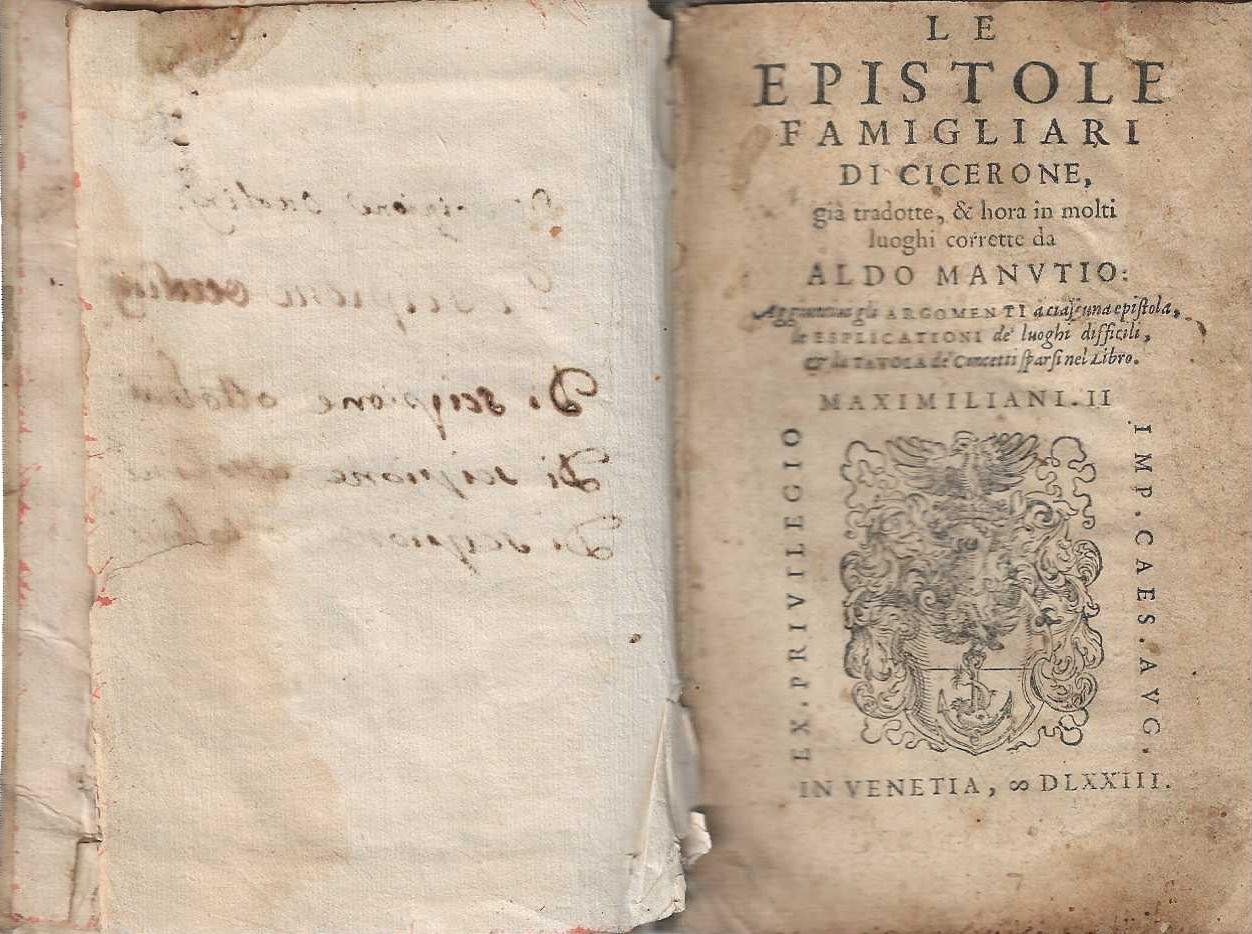 Di scipione
Di scipione
Di scipione
Di scipione
LE
EPISTOLE
FAMIGLIARI
DI CICERONE,
già tradotte, & hora in molti
luoghi corrette da
ALDO MANVTIO:
Aggiuntoui gli ARGOMENTI a ciaſcuna epiſtola,
le ESPLICATIONI de' luoghi difficili,
& la TAVOLA de' Concetti ſparſi nel Libro.
MAXIMILIANI. II
EX. PRIVILEGIO
IMP. CAES. AVG.
IN VENETIA, ∞ DLXXIII.